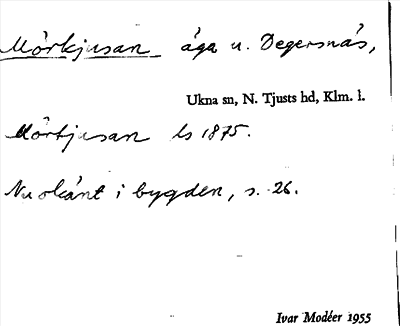 Mörkjusan äga u. Degersnäs,
Ukna sn, N. Tjusts hd, Klm. l.
Mörtjusan ls 1875.
Nu okänt i bygden, s. 26.
Ivar Modéer 1955